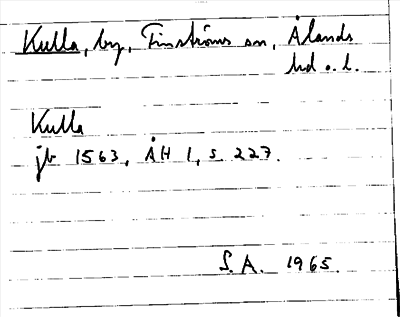 Kulla, by, Finströms sn, Ålands
hd o. l.
Kulla
jb 1563, ÅH 1, s. 227.
S.A. 1965.